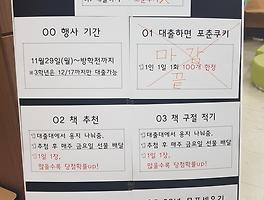 00 행사 기간
11월29일(월)~방학전까지
※3학년은 12/17까지만 대출가능
01 대출하면 포춘쿠키
마감
1인 1일 1회 100개 한정
끝
02 책 추천
대출대에서 용지 나눠줌,
추첨 후 매주 금요일 선물 배달
1일 1장,
많을수록 당첨확률up!
03 책 구절 적기
대출대에서 용지 나눠줌,
추첨 후 매주 금요일 선물 배달
1일 1장,
많을수록 당첨확률up!